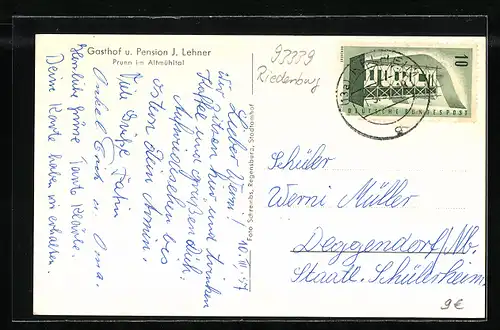 Gasthof u. Pension J. Lehner
Prunn im Altmühltal
93339
Riedenburg
10
DEUTSCHE BUNDESPOST
Lieber Werni!
Wir sitzen hier und trinken
Kaffee und grüßen Dich.
Aufwiedersehen bis
Viele Grüße
Onkel und u. Oma.
Herzliche Grüsse Tante
Deine Karte haben wir erhalten.
Foto Schrembs, Regensburg, Stadtamhof
Schüler
Werni Müller
Deggendorf/Nb.
Staatl. Schülerheim
9€